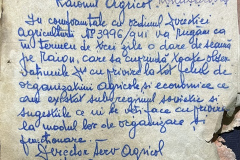 Raionul Agricol
In conformitate cu ordinul Sovietic
agriculturii № 3996/ qui vă rugăm ca
în termen de trei zile o dare de seamă
pe Raion, care să cuprindă toate observ
vațiunile și cu privire la tot felul de
organizațiuni agricole și economice ce
au existat sub regimul sovietic și
sugestiile ce ni le oferă cu privire
la modul lor de organizare și
funcționare.
Director Serv Agricol